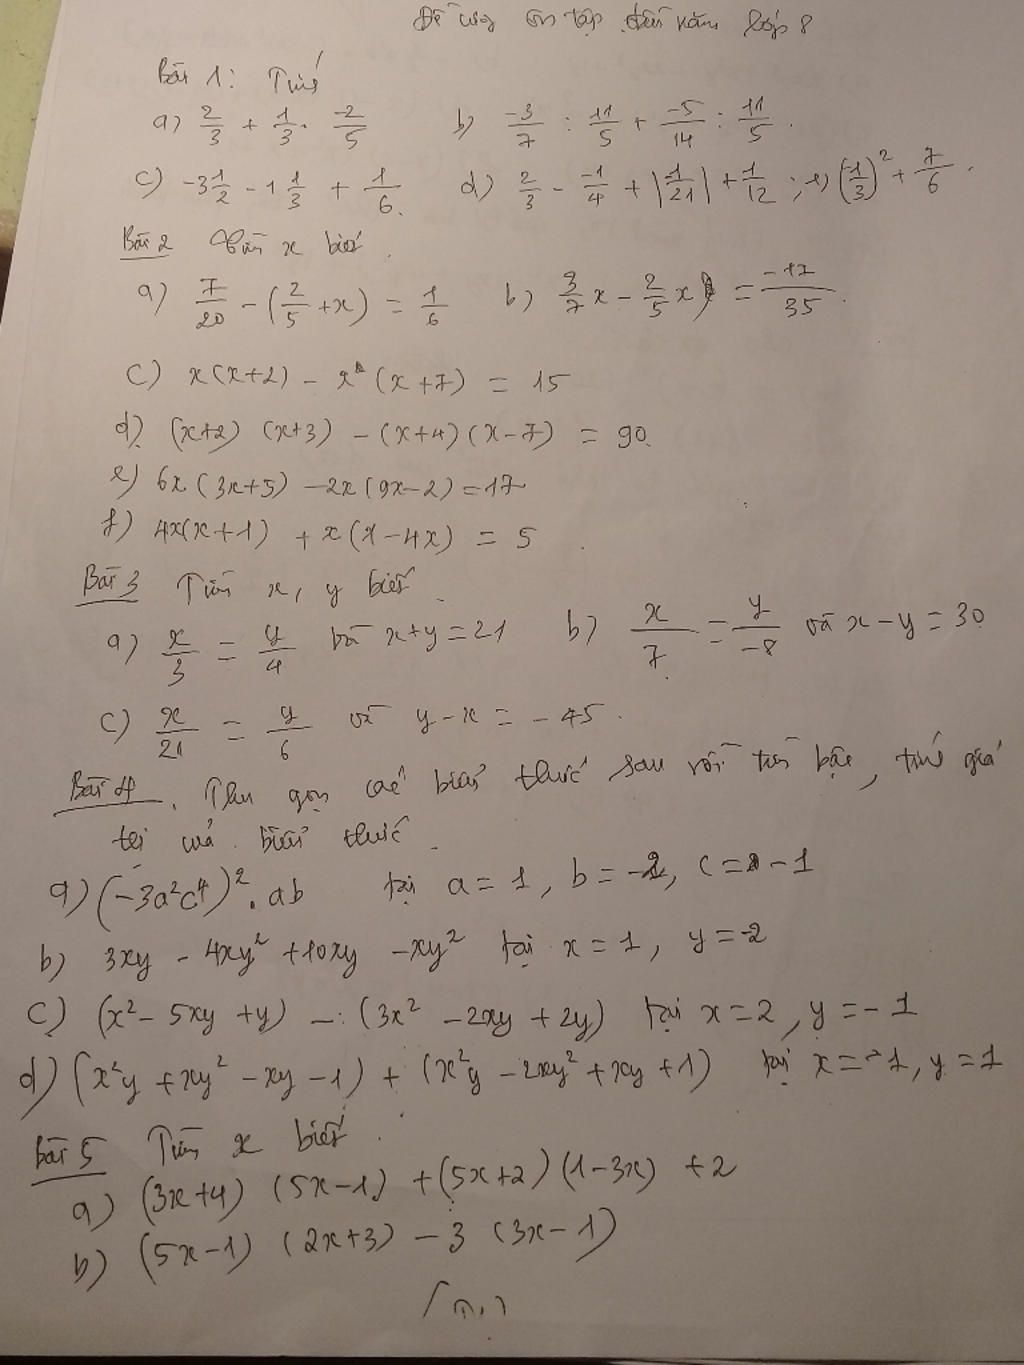 Đề cương ôn tập đầu năm lớp 8
Bài 1: Tính
a) 2/3 + 1/3 . -2/5 b) -3/7 : 11/5 + -5/14 : 11/5 .
c) -3 1/2 - 1 1/3 + 1/6 . d) 2/3 - -1/4 + |-1/21| + 1/12 ; e) (-1/3)² + 7/6 .
Bài 2 Tìm x biết .
a) 7/20 - (2/5 + x) = 1/6 b) 3/7 x - 2/5 x = -17/35 .
c) x(x+2) - x (x+7) = 15
d) (x+2) (x+3) - (x+4) (x-7) = 90.
e) 6x (3x+5) - 2x (9x-2) = 17
f) 4x(x+1) + x (1-4x) = 5 .
Bài 3 Tìm x, y biết .
a) x/3 = y/4 và x+y = 21 b) x/7 = y/-8 và x - y = 30
c) x/21 = y/6 và y - x = -45 .
Bài 4 . Thu gọn các biểu thức sau rồi tìm bậc, tính giá
trị của biểu thức .
a) (-3a²c⁴)² . ab tại a = 1, b = -2, c = -1
b) 3xy - 4xy² + 10xy - xy² tại x = 1, y = -2
c) (x² - 5xy + y) - (3x² - 2xy + 2y) tại x = 2, y = -1
d) (x²y + xy² - xy - 1) + (x²y - 2xy² + xy + 1) tại x = -1, y = 1
Bài 5 Tìm x biết .
a) (3x+4) (5x-1) + (5x+2) (1-3x) + 2
b) (5x-1) (2x+3) - 3 (3x-1)